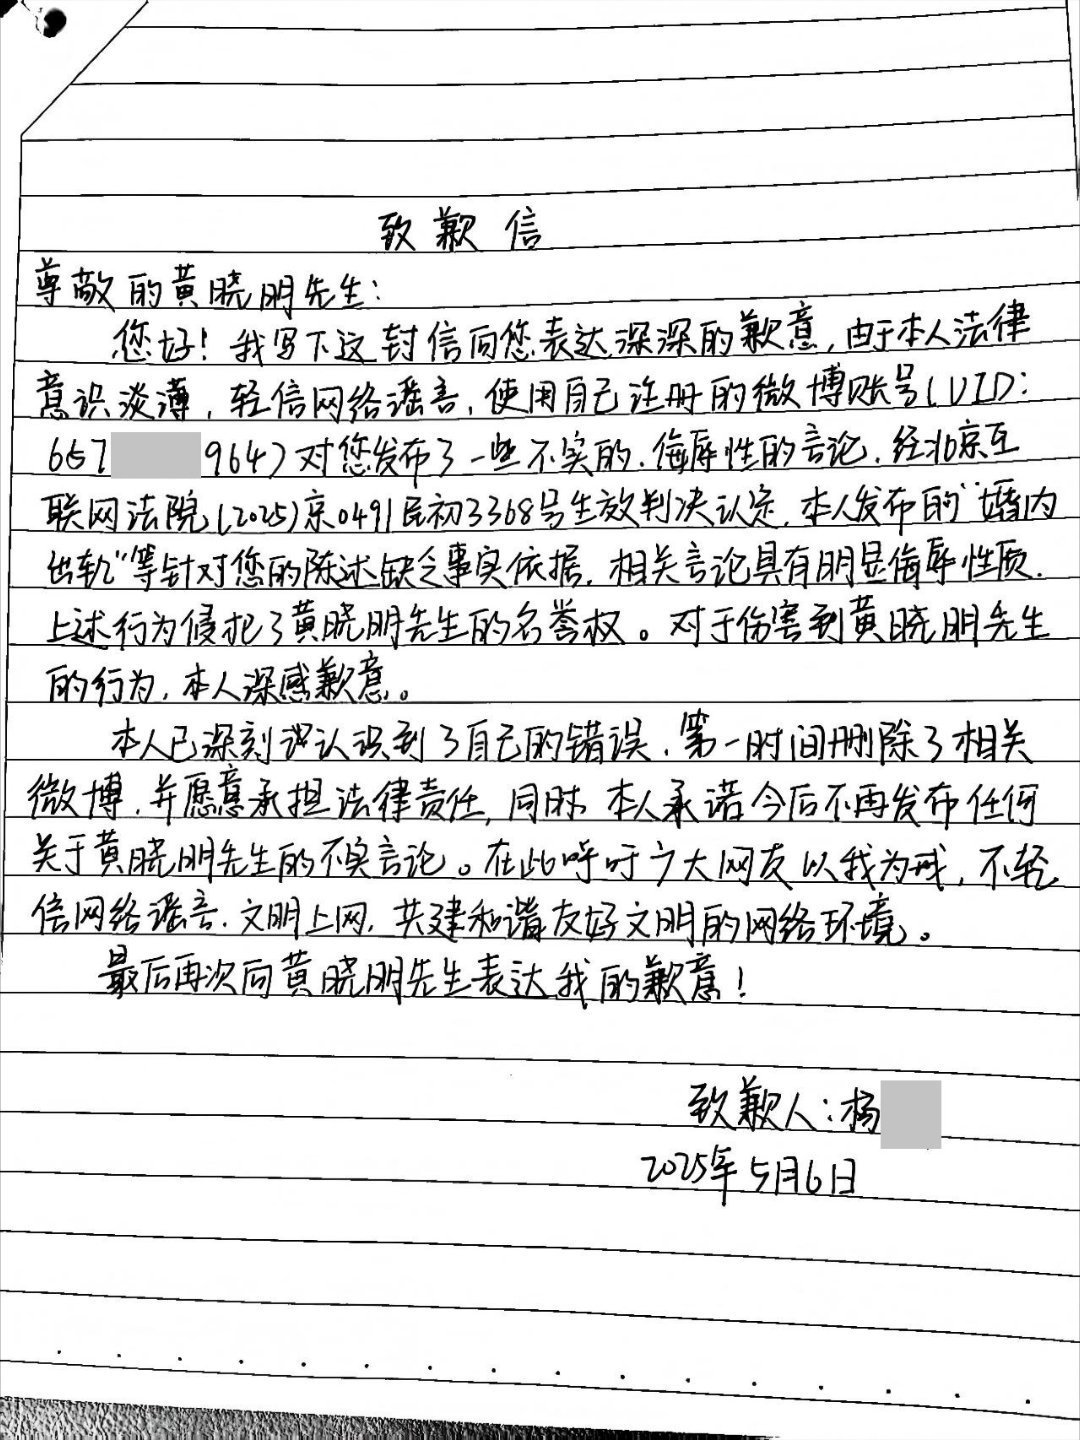 致歉信
尊敬的黄晓明先生：
您好！我写下这封信向您表达深深的歉意，由于本人法律
意识淡薄，轻信网络谣言，使用自己注册的微博账号（UID：
667 9647对您发布了一些不实的、侮辱性的言论，经北京互
联网法院（2025）京0491民初3368号生效判决认定，本人发布的“婚内
出轨”等针对您的陈述缺乏事实依据，相关言论具有明显侮辱性质，
上述行为侵犯了黄晓明先生的名誉权。对于伤害到黄晓明先生
的行为，本人深感歉意。
本人已深刻认识到了自己的错误，第一时间删除了相关
微博，并愿意承担法律责任，同时，本人承诺今后不再发布任何
关于黄晓明先生的不实言论。在此呼吁广大网友以我为戒，不轻
信网络谣言，文明上网，共建和谐友好文明的网络环境。
最后再次向黄晓明先生表达我的歉意！
致歉人：杨
2025年5月6日